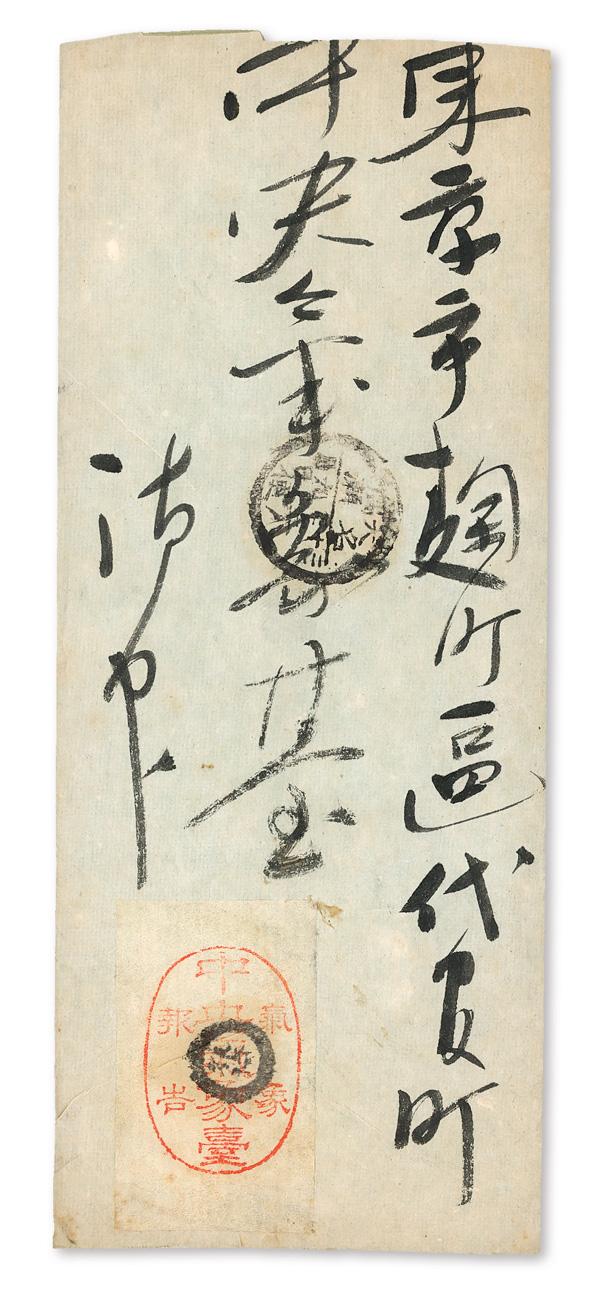 東京市麹町區代官町
中央氣象臺
御中
氣象
中央氣象臺
報告